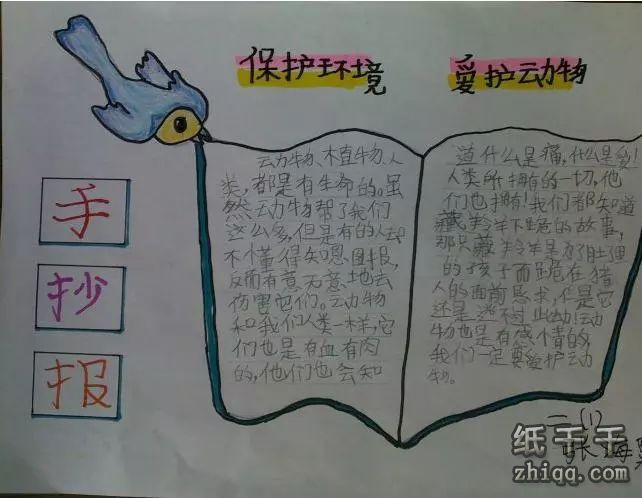 保护环境
爱护动物
手
抄
报
动物、植物、人
类，都是有生命的。虽
然动物帮了我们
这么多，但是有的人却
不懂得知恩图报，
反而有意无意地去
伤害它们。动物
和我们人类一样，它
们也是有血有肉
的，他们也会知
道什么是痛，什么是爱！
人类所拥有的一切，他
们也拥有！我们都知道
藏羚羊下跪的故事，
那只藏羚羊是为了肚里
的孩子而跪在猎
人的面前恳求，但是它
还是逃不过此劫！动
物也是有感情的，
我们一定要爱护动
物。
二（1）
张海
纸千千
zhiqq.com